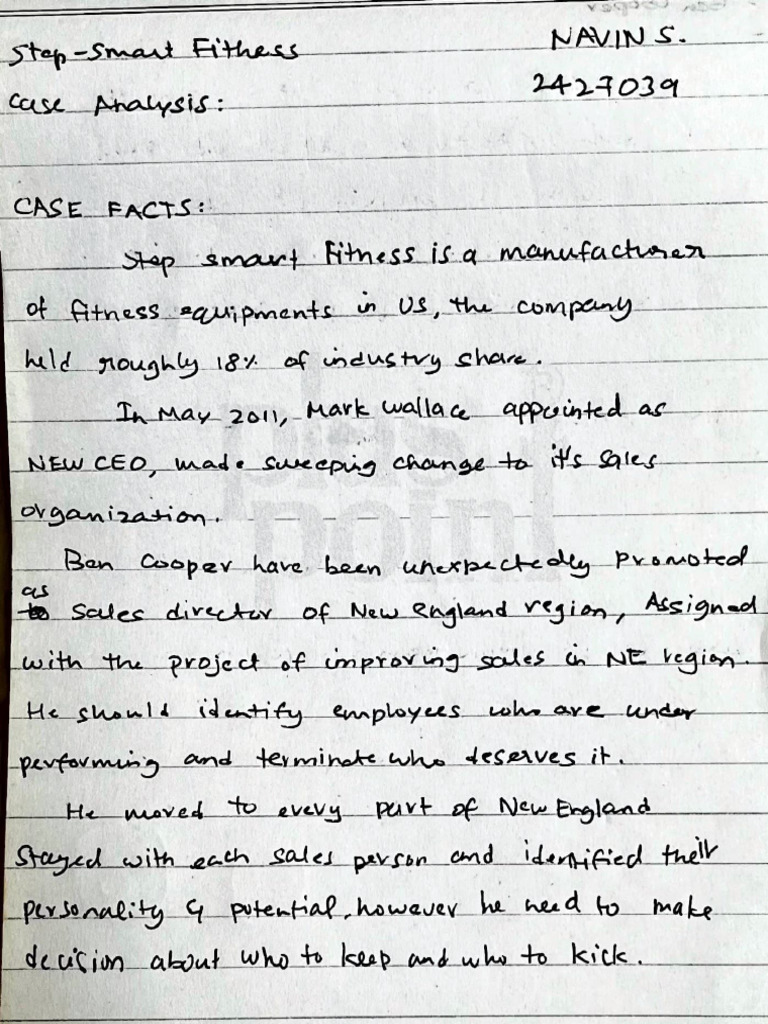 Step-Smart Fitness
NAVIN S.
2427039
Case Analysis:
CASE FACTS:
Step smart Fitness is a manufacturer
of fitness equipments in US, the company
held roughly 18% of industry share.
In May 2011, Mark Wallace appointed as
NEW CEO, made sweeping change to it's sales
organization.
Ben Cooper have been unexpectedly promoted
as
to sales director of New England region, Assigned
with the project of improving sales in NE region.
He should identify employees who are under
performing and terminate who deserves it.
He moved to every part of New England
Stayed with each sales person and identified their
personality & potential, however he need to make
decision about who to keep and who to kick.